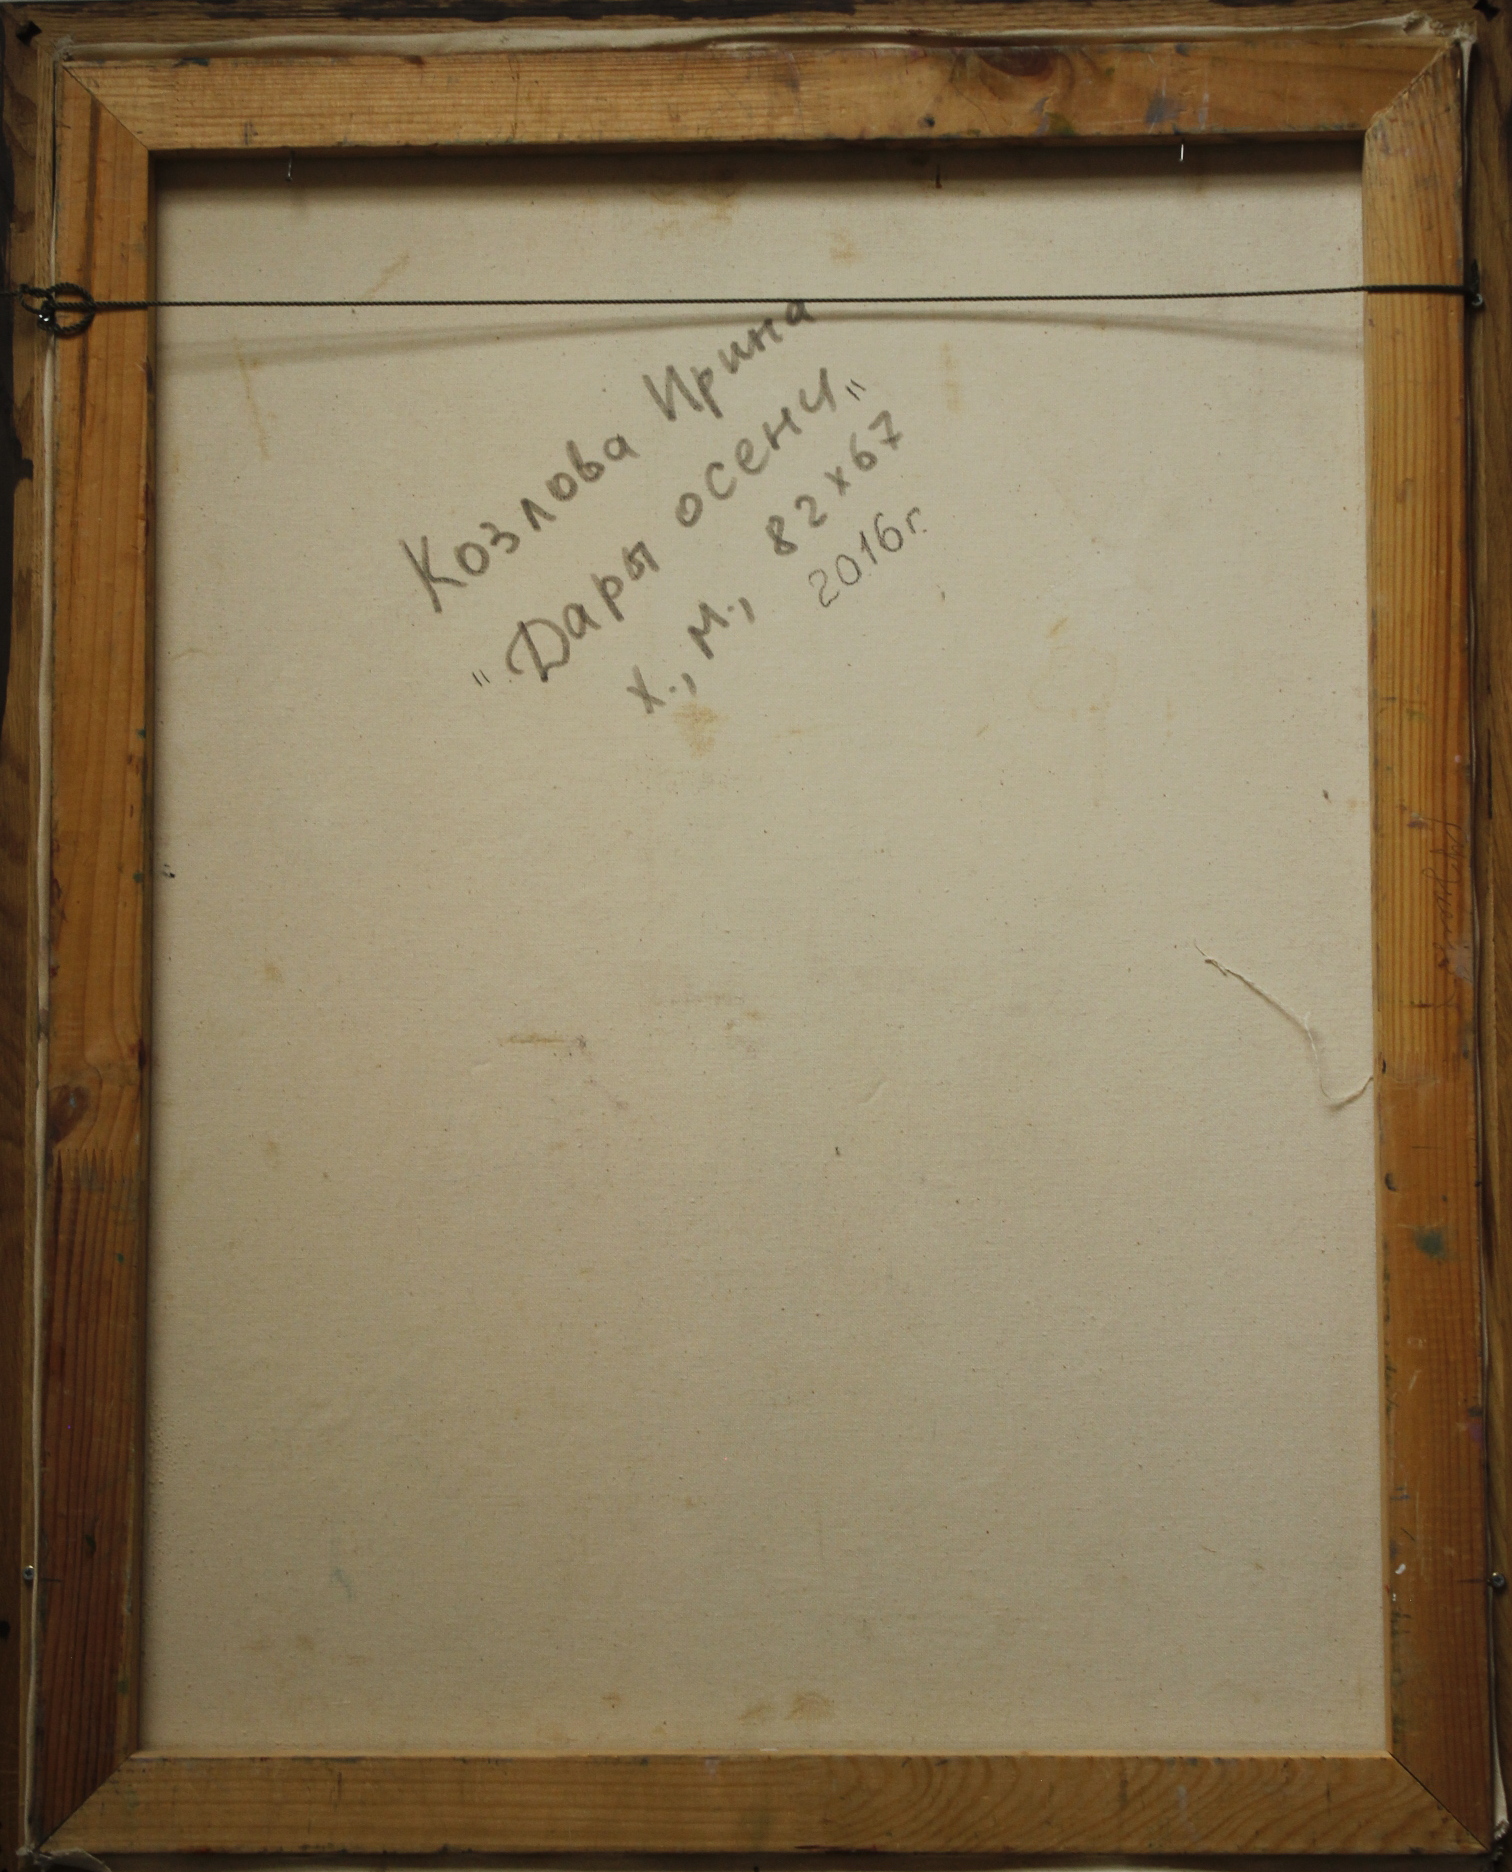 Козлова Ирина
"Дары осени"
х., м., 82х67
2016г.